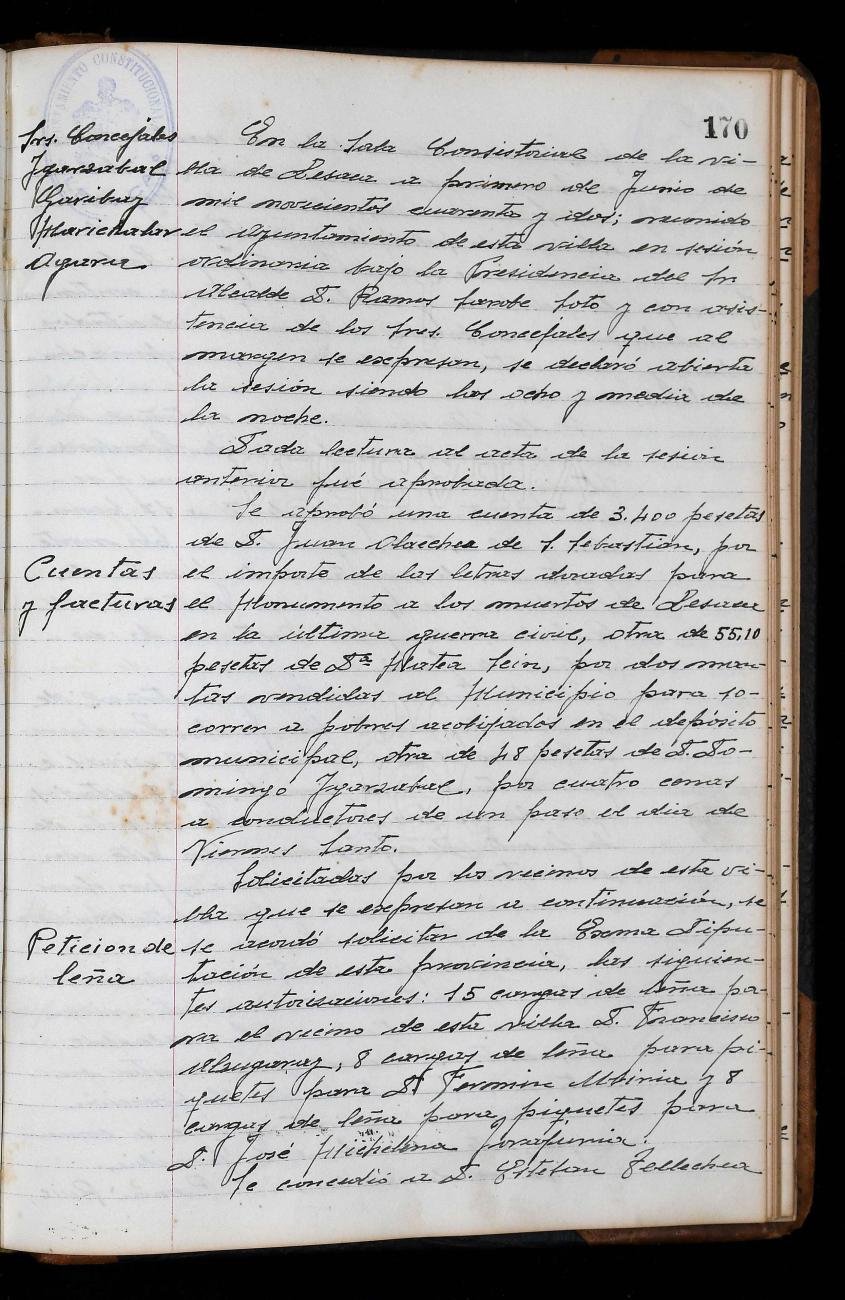 170
AYUNTAMIENTO CONSTITUCIONAL
Srs. Concejales
Ygarzabal
Garibay
Marichalar
Agara
En la Sala Consistorial de la vi-
lla de Lesaca a primero de Junio de
mil novecientos cuarenta y dos; reunido
el Ayuntamiento de esta villa en sesión
ordinaria bajo la Presidencia del Sr
Alcalde D. Ramos Sarobe Soto y con asis-
tencia de los Sres. Concejales que al
margen se expresan, se declaró abierta
la sesión siendo las ocho y media de
la noche.
Dada lectura al acta de la sesión
anterior fué aprobada.
Cuentas
y facturas
Se aprobó una cuenta de 3.400 pesetas
de D. Juan Olaechea de S. Sebastián, por
el importe de las letras doradas para
el Monumento a los muertos de Lesaca
en la última guerra civil, otra de 55,10
pesetas de Dª Matea Sein, por dos man-
tas vendidas al Municipio para so-
correr a pobres acobijados en el depósito
municipal, otra de 48 pesetas de D. Do-
mingo Ygarzabal, por cuatro cenas
a conductores de un paso el dia de
Viernes Santo.
Peticion de
leña
Solicitadas por los vecinos de esta vi-
lla que se expresan a continuación, se
se acordó solicitar de la Exema Dipu-
tación de esta provincia, las siguien-
tes autorisaciones: 15 cargas de leña pa-
ra el vecino de esta villa D. Francisco
Alzugaray, 8 cargas de leña para pi-
quetes para D. Fermin y 8
cargas de leña para piquetes para
D. José Michelena
Se concedió a D. Esteban Tellechea